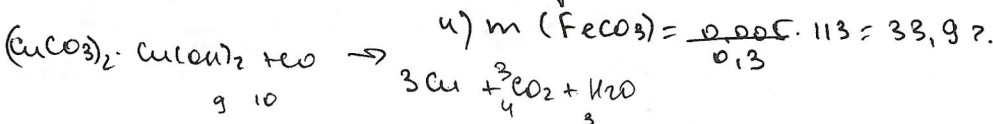 4) m (FeCO3) = 0,005 / 0,3 · 113 = 33,9 г.
(CuCO3)2 · Cu(OH)2 + CO →
3 Cu + 3 CO2 + H2O
9 10 4 3